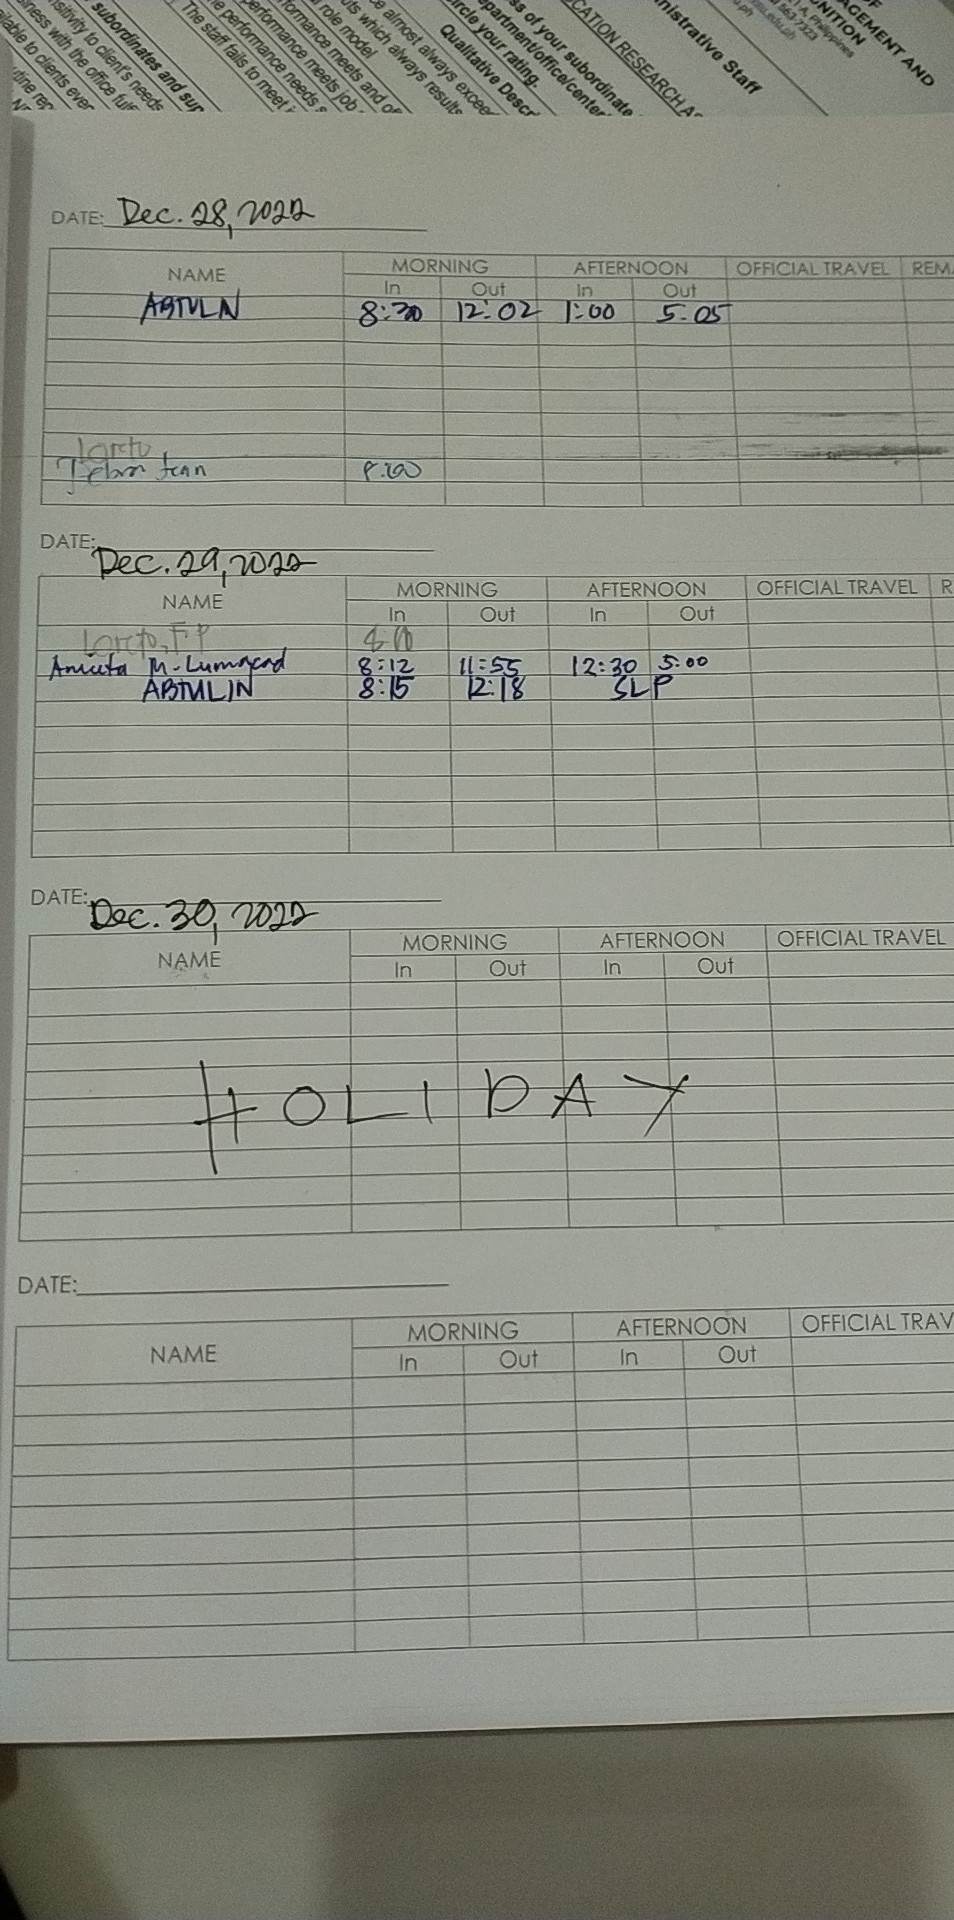 subordinates and sup
nsitivity to client's needs
siness with the office fulf
ilable to clients ever
utine req
The staff fails to meet j
he performance needs s
performance meets job
formance meets and of
role model
uts which always results
e almost always excee
Qualitative Descr
ircle your rating.
partment/office/center
ss of your subordinate
CATION RESEARCH A
nistrative Staff
AGEMENT AND
UNITION
DATE: Dec. 28, 2022
NAME MORNING AFTERNOON OFFICIAL TRAVEL REM
In Out In Out
ABTULN 8:30 12:02 1:00 5:05
Loreto
8:00
DATE: Dec. 29, 2022
NAME MORNING AFTERNOON OFFICIAL TRAVEL R
In Out In Out
Loreto, FP
Aniceta M. Lumacad 8:12 11:55 12:30 5:00
ABTULIN 8:15 12:18 SLP
DATE: Dec. 30, 2022
NAME MORNING AFTERNOON OFFICIAL TRAVEL
In Out In Out
HOLIDAY
DATE:
NAME MORNING AFTERNOON OFFICIAL TRAV
In Out In Out